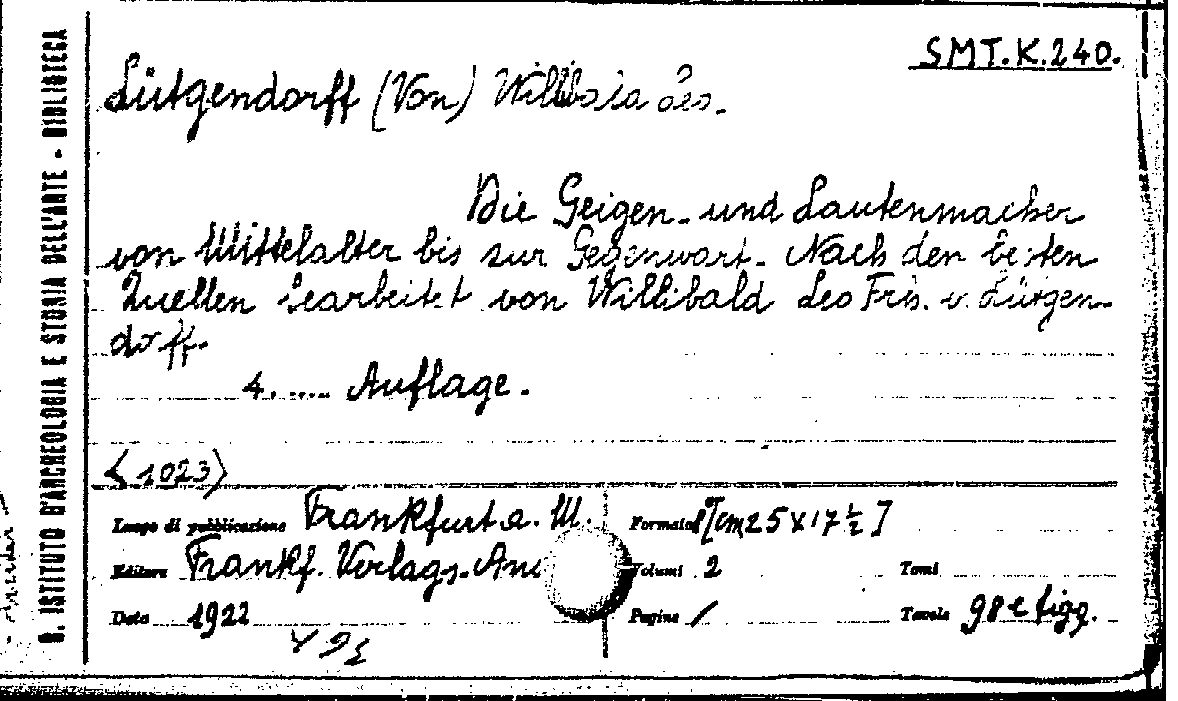 SMT.K.240.
Lütgendorff (Von) Willibald Leo.
Die Geigen- und Lautenmacher
von Mittelalter bis zur Gegenwart. Nach den besten
Quellen bearbeitet von Willibald Leo Frh. v. Lütgen-
dorff.
4. ..... Auflage.
<1023>
Luogo di pubblicazione Frankfurt a. M.
Formato [cm 25 x 17 ½]
Editore Frankf. Verlags-An
Volumi 2
Tomi
Data 1922
Pagine /
Tavole 98 e figg.
R. ISTITUTO D'ARCHEOLOGIA E STORIA DELL'ARTE - BIBLIOTECA